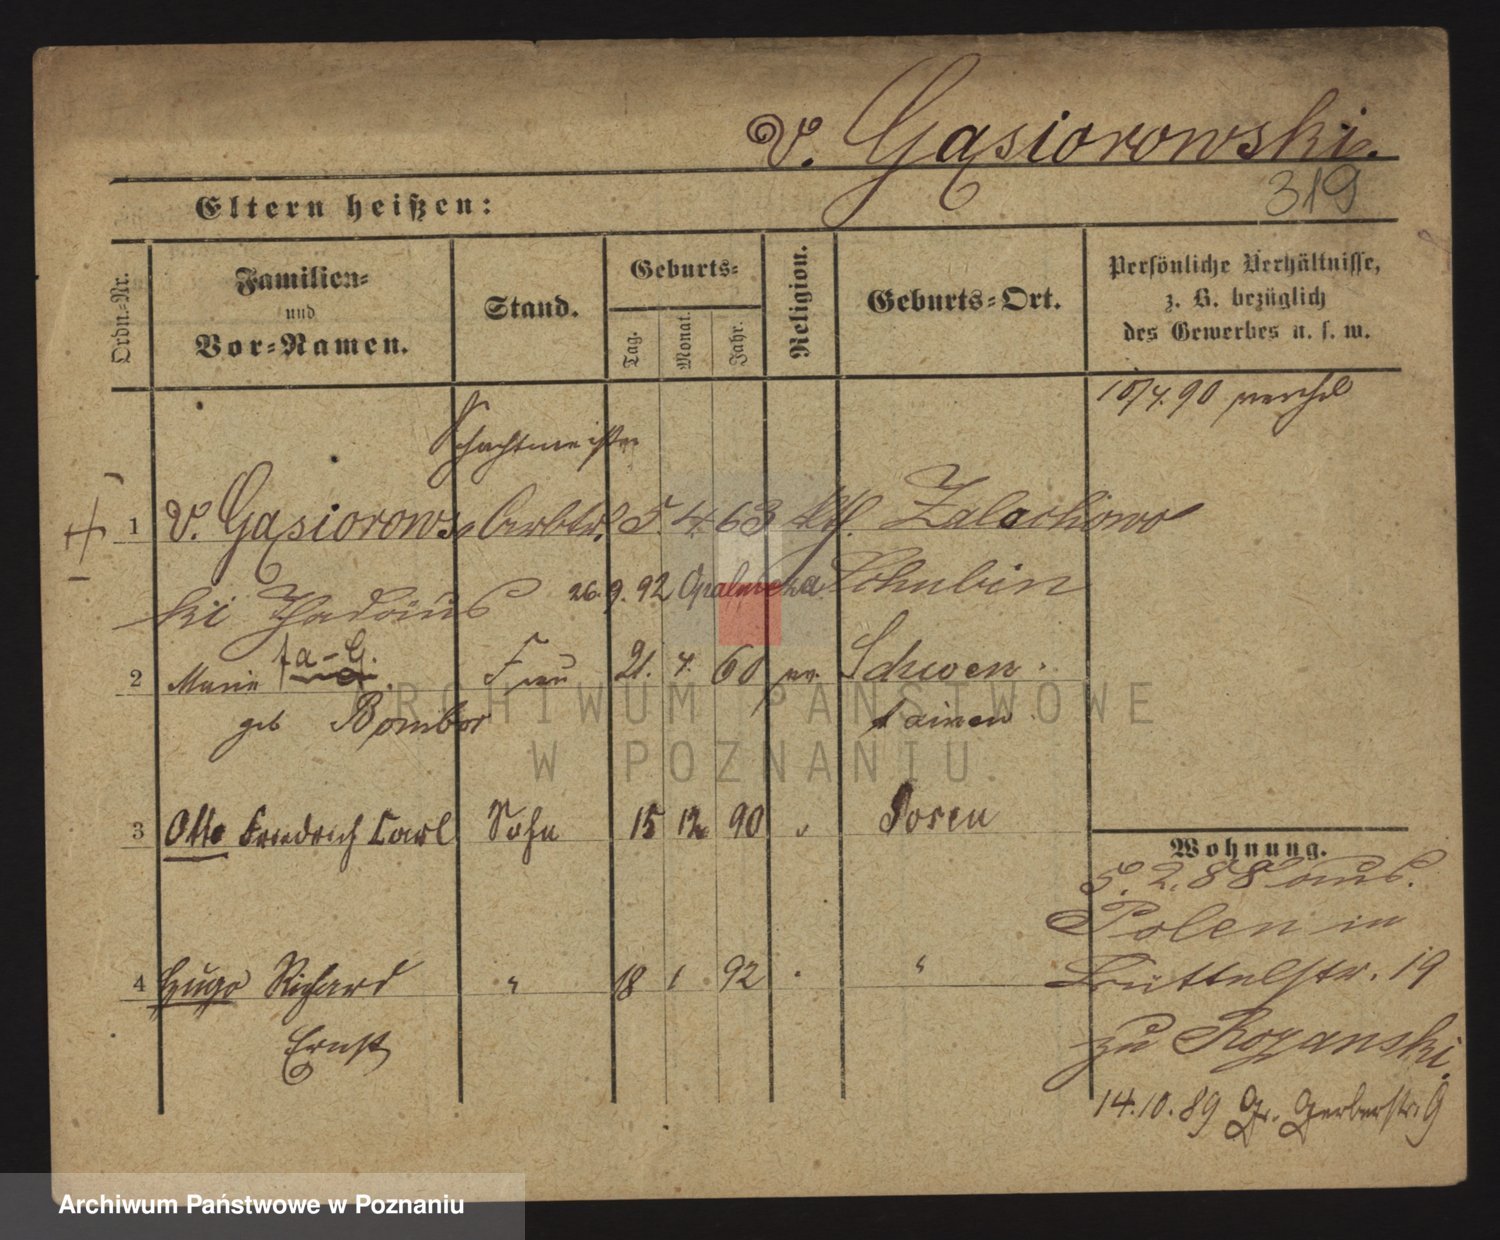 v. Gąsiorowski.
319
Eltern heißen:
Ordn.-Nr.
Familien-
und
Vor-Namen.
Stand.
Geburts-
Tag.
Monat.
Jahr.
Religion.
Geburts-Ort.
Persönliche Verhältnisse,
z. B. bezüglich
des Gewerbes u. s. w.
10/4. 90
Schachtmeister
1 v. Gąsiorows- Arbtr. 5. 4. 63 kth. Zalachowo
ki Thadäus 26. 9. 92 Opalenica Schubin
2 Marie a-G. Frau 21. 4. 60 ev. Schwen-
geb Bombor tainen
3 Otto Friedrich Carl Sohn 15 12 90 " Posen
4 Hugo Richard " 18 1 92 " "
Ernst
Wohnung.
5. 2. 88 aus.
Polen in
Büttelstr. 19
zu Rozanski.
14. 10. 89 Gr. Gerberstr. 9
ARCHIWUM PAŃSTWOWE
W POZNANIU
Archiwum Państwowe w Poznaniu